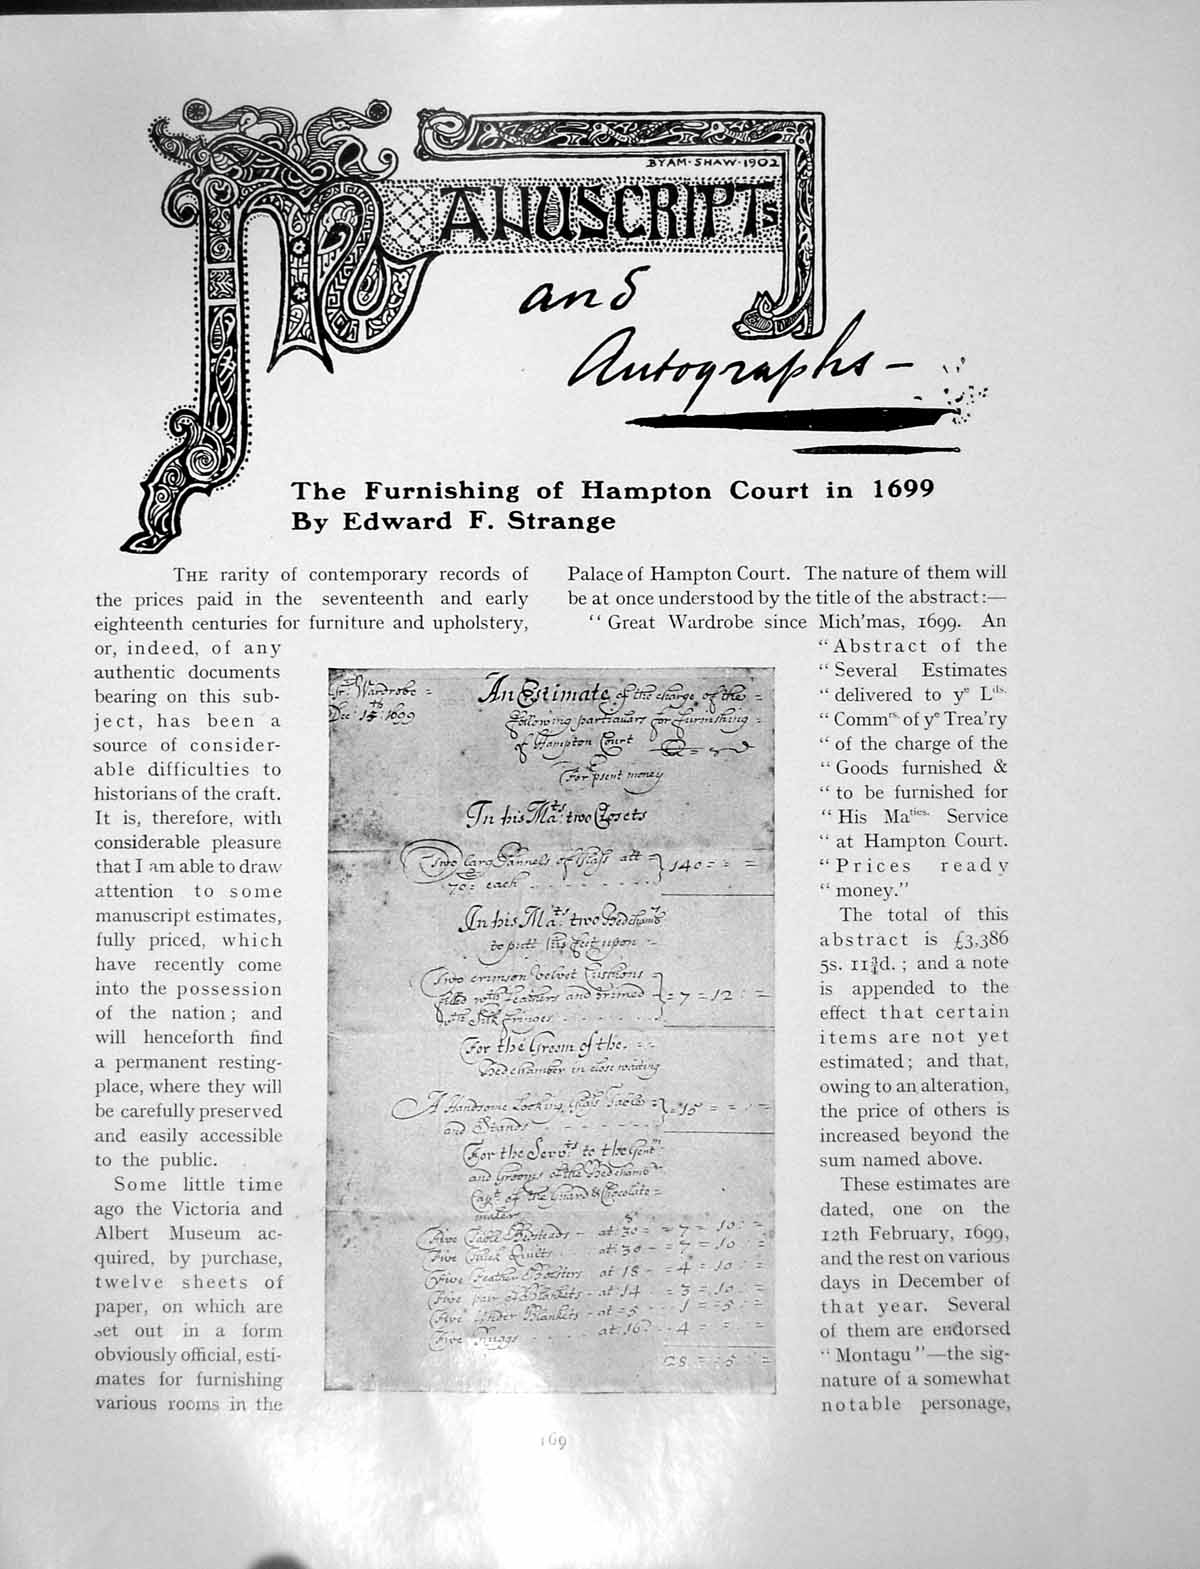 BYAM·SHAW·1902
MANUSCRIPTS
and
Autographs—
The Furnishing of Hampton Court in 1699
By Edward F. Strange
THE rarity of contemporary records of
the prices paid in the seventeenth and early
eighteenth centuries for furniture and upholstery,
or, indeed, of any
authentic documents
bearing on this sub-
ject, has been a
source of consider-
able difficulties to
historians of the craft.
It is, therefore, with
considerable pleasure
that I am able to draw
attention to some
manuscript estimates,
fully priced, which
have recently come
into the possession
of the nation; and
will henceforth find
a permanent resting-
place, where they will
be carefully preserved
and easily accessible
to the public.
Some little time
ago the Victoria and
Albert Museum ac-
quired, by purchase,
twelve sheets of
paper, on which are
set out in a form
obviously official, esti-
mates for furnishing
various rooms in the
Gr: Wardrobe =
Dec: 14th: 1699
An Estimate of the charge of the =
following particulars for furnishing =
of Hampton Court
For psent money
In his Mats: two Closets
Two Larg Pannels of Glass att
70: each - - - - - - } 140 = = =
In his Mats two Bedchambrs
to putt his feet upon =
Two crimson Velvet Cushions
filled wth feathers and trimed } = 7 = 12 : =
wth Silk fringes - - - - -
For the Groom of the = =
Bedchamber in close waiting
A Handsome Looking Glass Table =
and Stands - - - - - - } = 15 = = =
For the Servts to the Gentn
and Grooms of the Bedchambr
Capt of the Guard & Chocolate =
maker
Five Table Bedsteads - at 30s = = 7 = 10 : =
Five Check Quilts - at 30 - = 7 = 10 : =
Five Feather Bolsters at 18 - = 4 = 10 : =
Five pair of Blankets - at 14 : = 3 = 10 : =
Five Under Blankets - at = 5 - - 1 = 5 : =
Five Ruggs - - - at 16 : - 4 = = =
28 = : 5 : =
Palace of Hampton Court. The nature of them will
be at once understood by the title of the abstract:—
"Great Wardrobe since Mich'mas, 1699. An
"Abstract of the
"Several Estimates
"delivered to ye Lds.
"Commrs. of ye Trea'ry
"of the charge of the
"Goods furnished &
"to be furnished for
"His Maties. Service
"at Hampton Court.
"Prices ready
"money."
The total of this
abstract is £3,386
5s. 11¾d.; and a note
is appended to the
effect that certain
items are not yet
estimated; and that,
owing to an alteration,
the price of others is
increased beyond the
sum named above.
These estimates are
dated, one on the
12th February, 1699,
and the rest on various
days in December of
that year. Several
of them are endorsed
"Montagu"—the sig-
nature of a somewhat
notable personage,
169